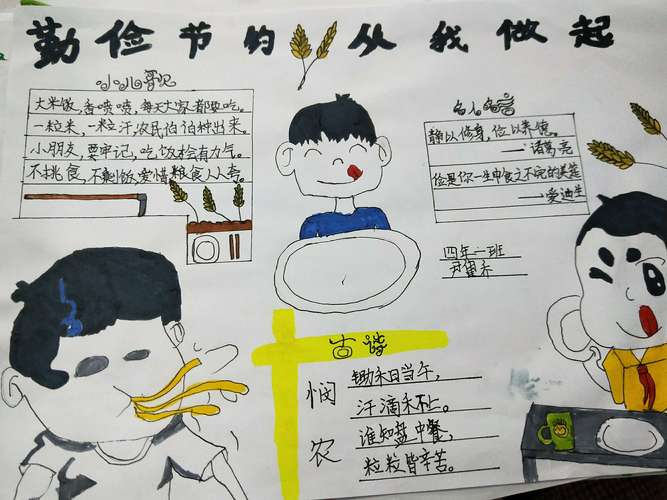 勤俭节约 从我做起
小儿哥见
大米饭,香喷喷,每天大家都要吃。
一粒米,一粒汗,农民伯伯种出来。
小朋友,要牢记,吃饭才会有力气。
不挑食,不剩饭,爱惜粮食人人夸。
名人名言
静以修身,俭以养德。
诸葛亮
俭是你一生中食之不完的美筵
——爱迪生
四年一班
古诗
悯农
锄禾日当午,
汗滴禾下土。
谁知盘中餐,
粒粒皆辛苦。